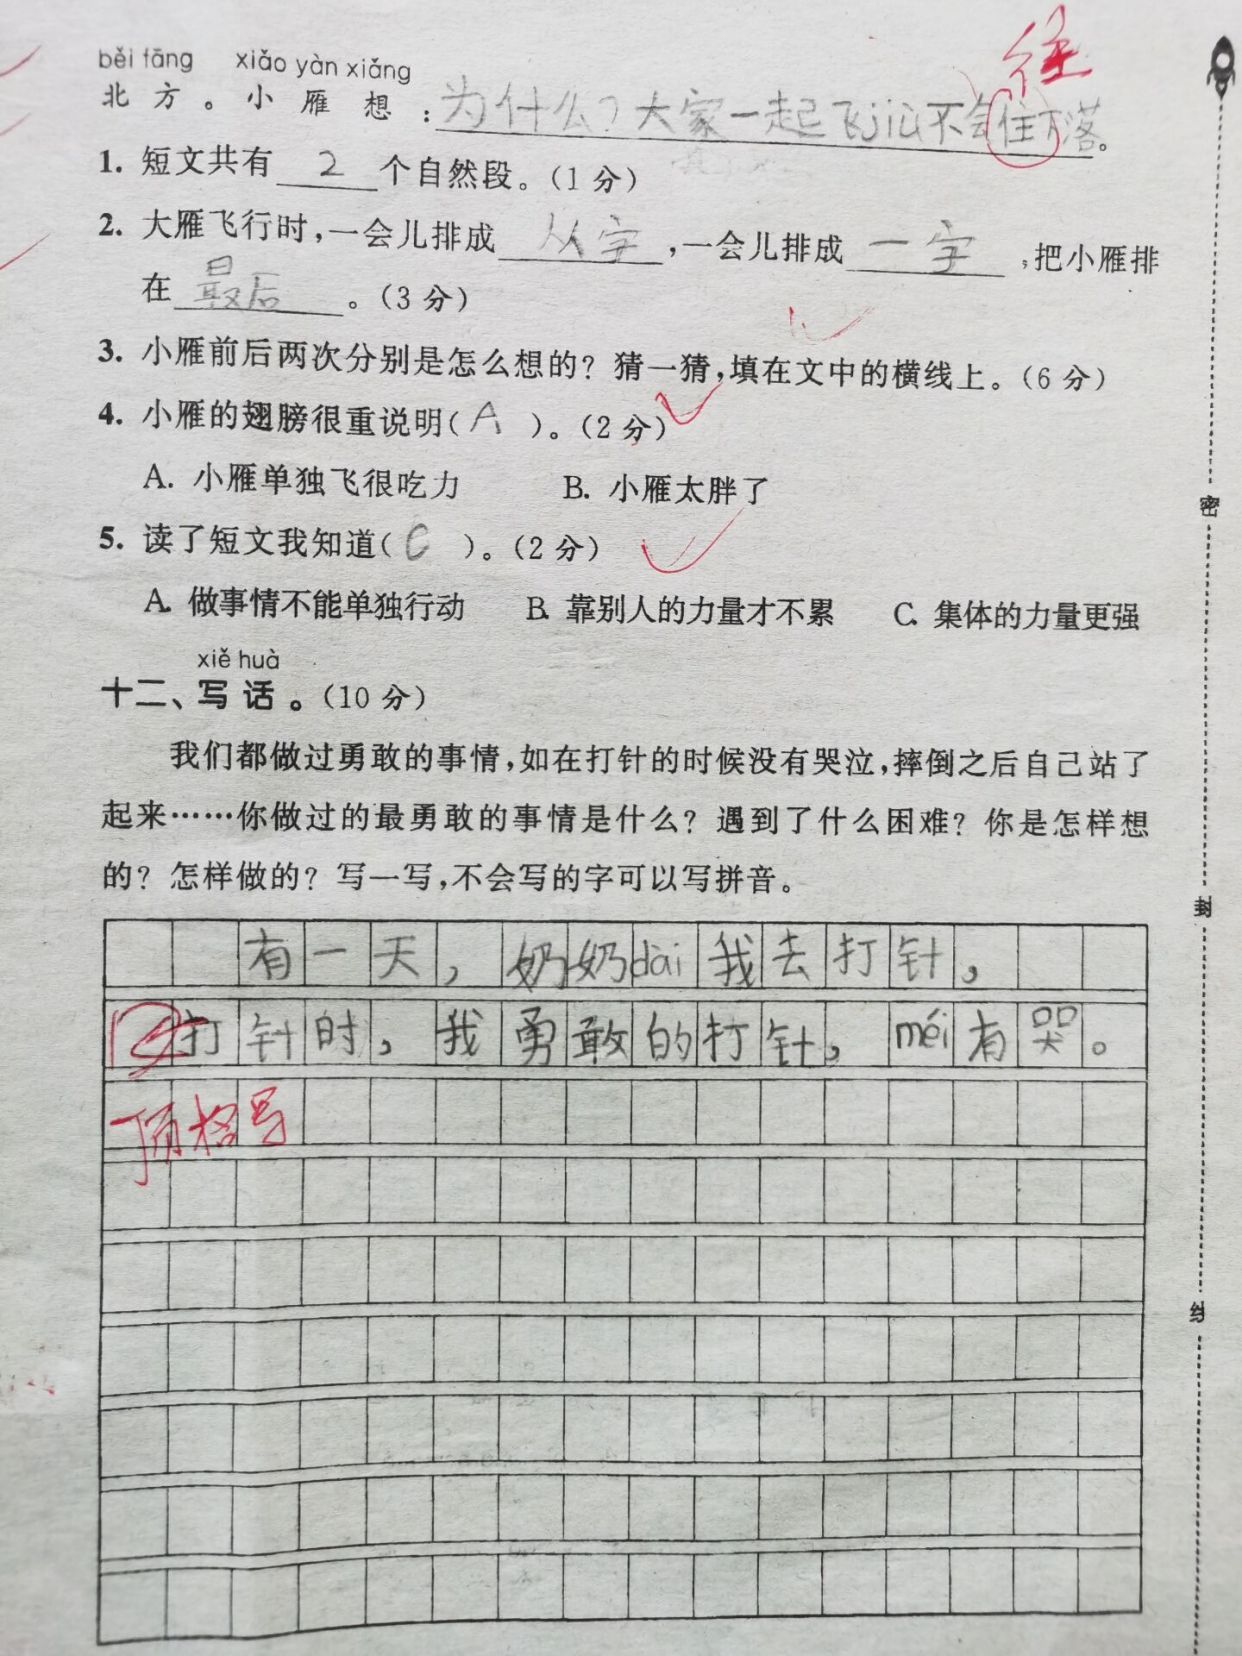 běi fāng xiǎo yàn xiǎng
往
北方。小雁想:为什么?大家一起飞jiù不会住下落。
1. 短文共有 2 个自然段。(1分)
2. 大雁飞行时,一会儿排成 从字 ,一会儿排成 一字 ,把小雁排
在 最后 。(3分)
3. 小雁前后两次分别是怎么想的?猜一猜,填在文中的横线上。(6分)
4. 小雁的翅膀很重说明( A )。(2分)
A. 小雁单独飞很吃力 B. 小雁太胖了
5. 读了短文我知道( C )。(2分)
A. 做事情不能单独行动 B. 靠别人的力量才不累 C. 集体的力量更强
xiě huà
十二、写话。(10分)
我们都做过勇敢的事情,如在打针的时候没有哭泣,摔倒之后自己站了
起来……你做过的最勇敢的事情是什么?遇到了什么困难?你是怎样想
的?怎样做的?写一写,不会写的字可以写拼音。
有一天,奶奶dài我去打针,
打针时,我勇敢的打针,méi有哭。
顶格写
密
封
线